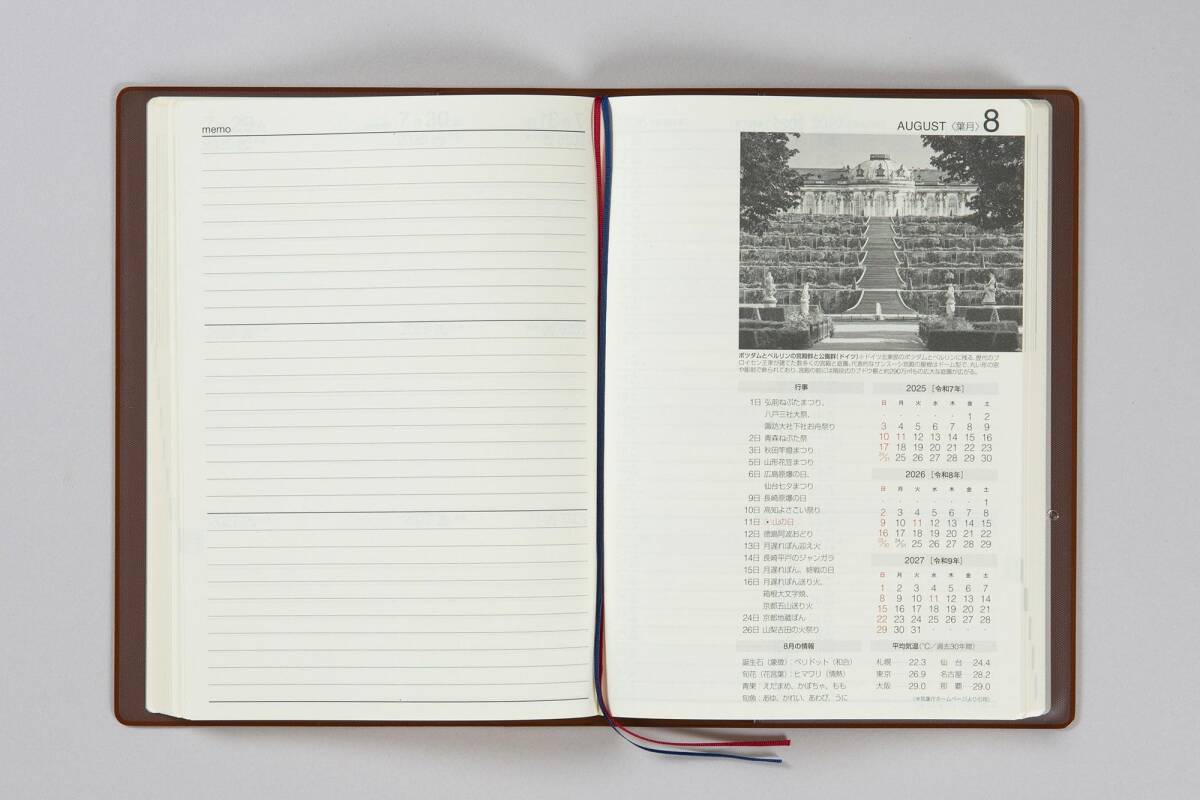 memo
AUGUST〈葉月〉8
ポツダムとベルリンの宮殿群と公園群(ドイツ)
行事
1日 弘前ねぷたまつり、
八戸三社大祭、
諏訪大社下社お舟祭り
2日 青森ねぶた祭
3日 秋田竿燈まつり
5日 山形花笠まつり
6日 広島原爆の日、
仙台七夕まつり
9日 長崎原爆の日
10日 高知よさこい祭り
11日 •山の日
12日 徳島阿波おどり
13日 月遅れぼん迎え火
14日 長崎平戸のジャンガラ
15日 月遅れぼん、終戦の日
16日 月遅れぼん送り火、
箱根大文字焼、
京都五山送り火
24日 京都地蔵ぼん
26日 山梨吉田の火祭り
2025 [令和7年]
日 月 火 水 木 金 土
· · · · · 1 2
3 4 5 6 7 8 9
10 11 12 13 14 15 16
17 18 19 20 21 22 23
24/31 25 26 27 28 29 30
2026 [令和8年]
日 月 火 水 木 金 土
· · · · · · 1
2 3 4 5 6 7 8
9 10 11 12 13 14 15
16 17 18 19 20 21 22
23/30 24/31 25 26 27 28 29
2027 [令和9年]
日 月 火 水 木 金 土
1 2 3 4 5 6 7
8 9 10 11 12 13 14
15 16 17 18 19 20 21
22 23 24 25 26 27 28
29 30 31 · · · ·
8月の情報
誕生石(象徴):ペリドット(和合)
旬花(花言葉):ヒマワリ(情熱)
青果:えだまめ、かぼちゃ、もも
旬魚:あゆ、かれい、あわび、うに
平均気温(℃/過去30年間)
札幌 22.3 仙台 24.4
東京 26.9 名古屋 28.2
大阪 29.0 那覇 29.0
(※気象庁ホームページより引用)